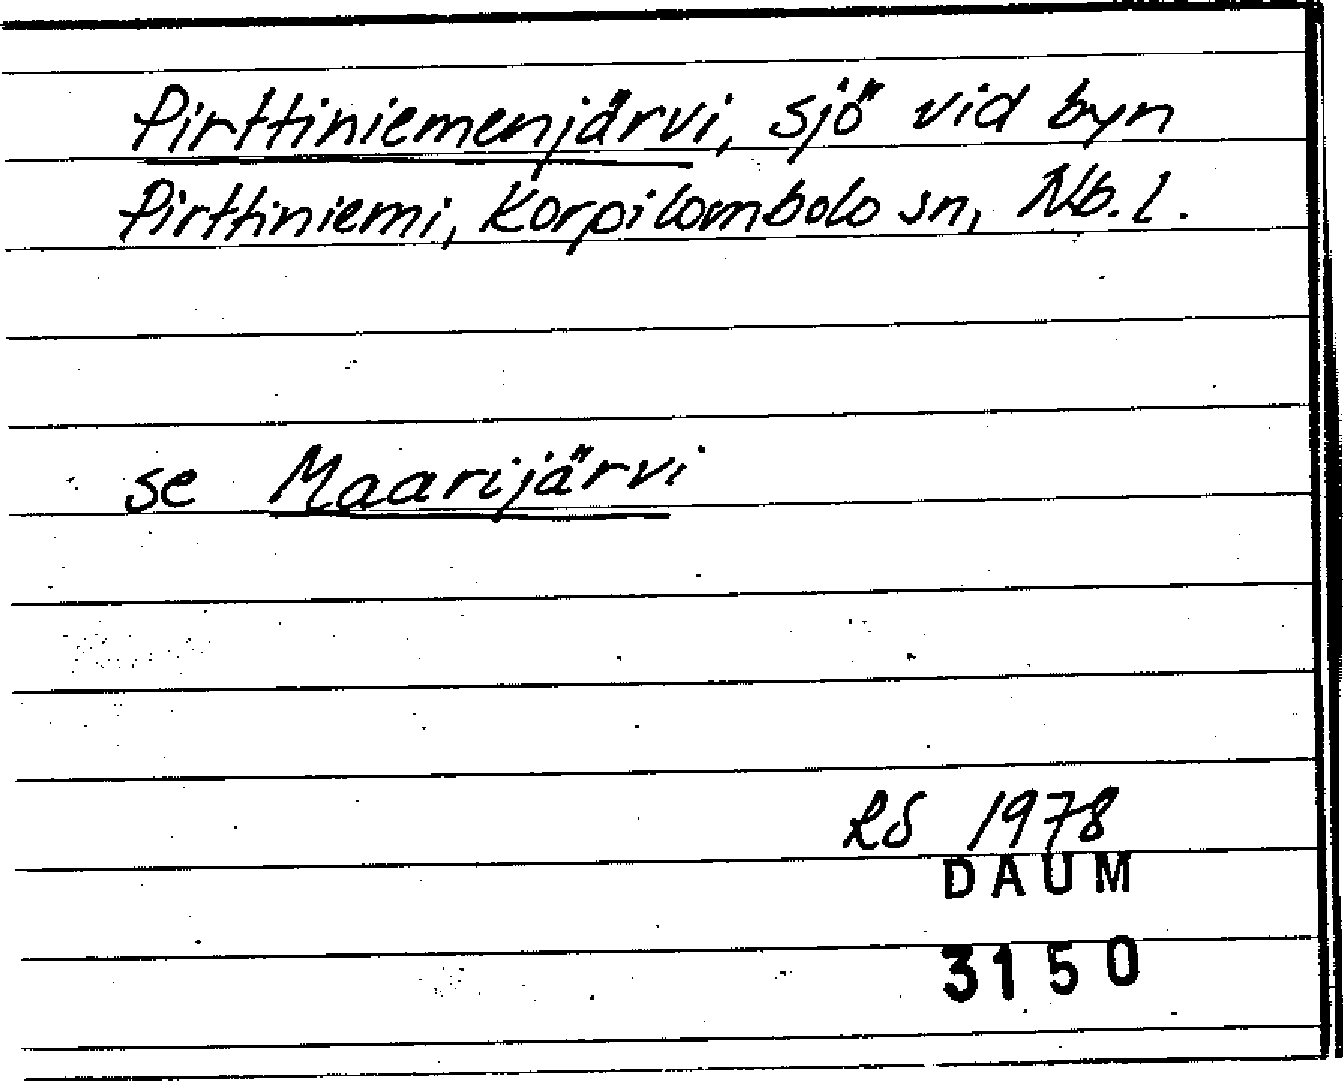 Pirttiniemenjärvi, sjö vid byn
Pirttiniemi, Korpilombolo sn, Nb.l.
se Maarijärvi
RS 1978
DAUM
3150